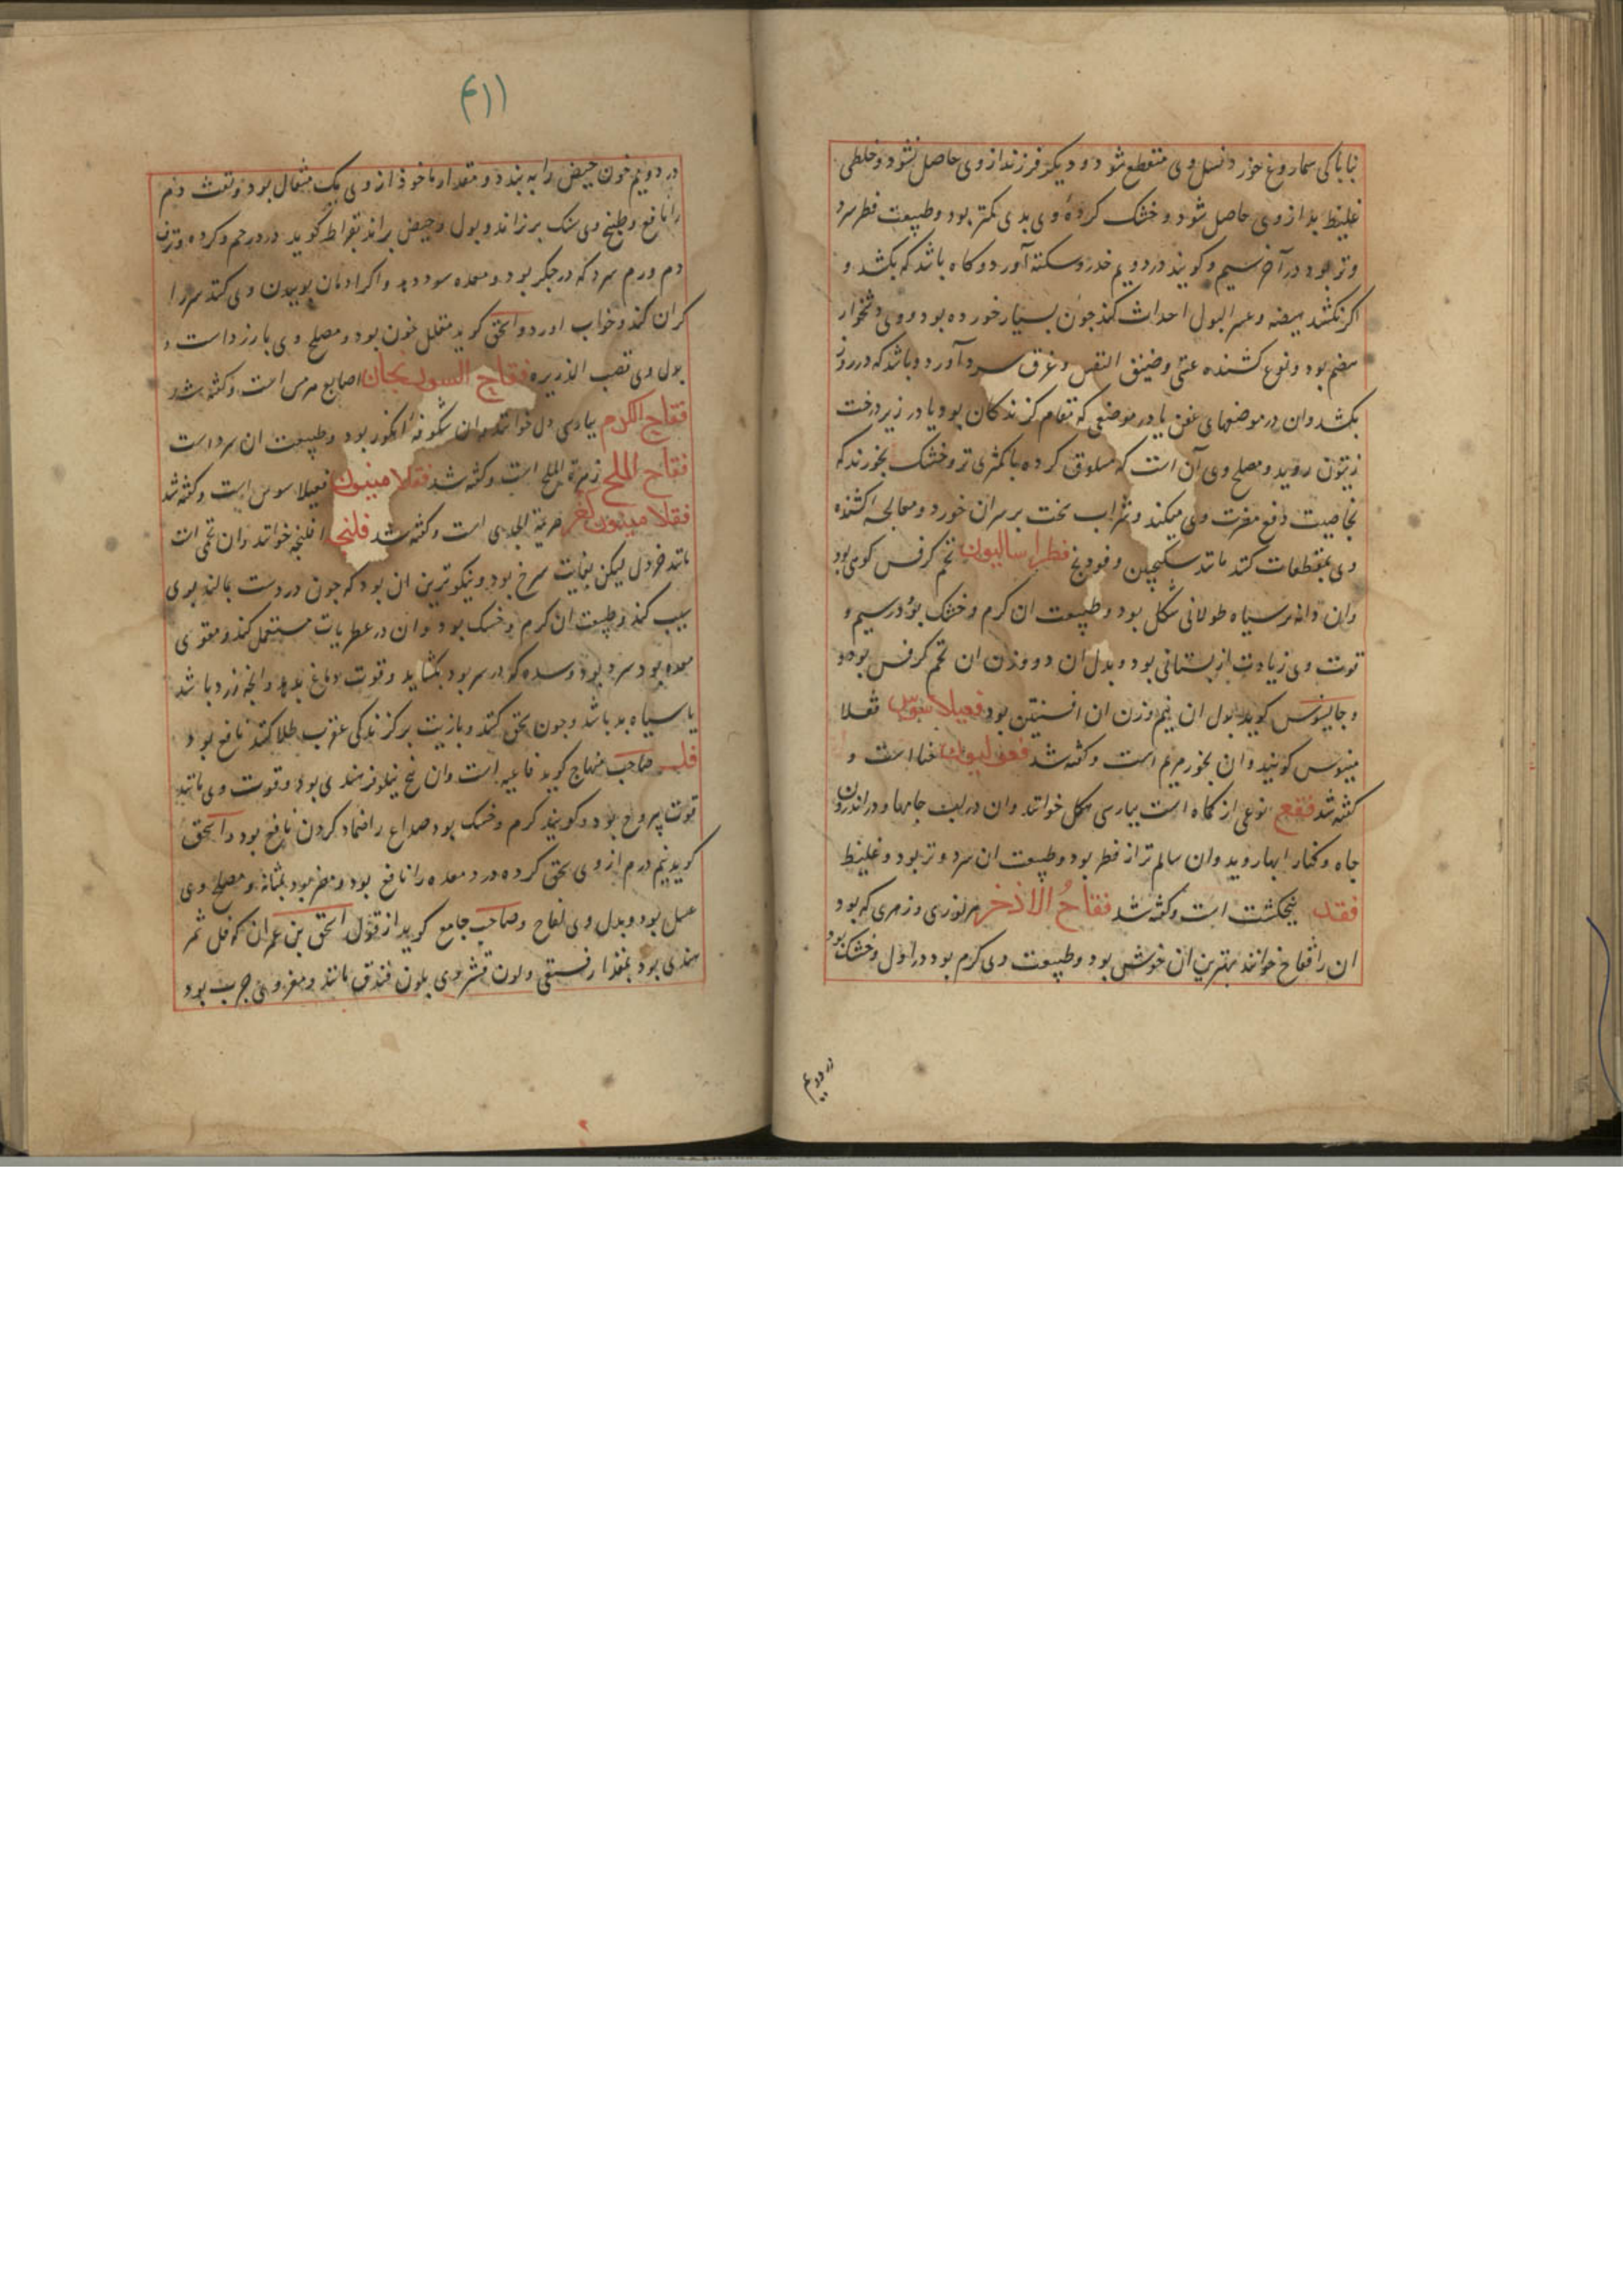 نباباکی سماروغ خورد نسل وی منقطع شود و دیکر فرزند از وی حاصل نشود و خلطی
غلیظ بد از وی حاصل شود و خشک کردهٔ وی بدی کمتر بود و طبیعت فطر سرد
و تر بود در آخر سیم و کویند در دویم خدر و سکته آورد و کاه باشد که بکشد و
اکر نکشد هیضه و عسر البول احداث کند چون بسیار خورده بود و وی دشخوار
هضم بود و نوع کشنده غشی و ضیق النفس و عرق سرد آورد و باشد که در روز
بکشد و ان در موضعهای عفن یا در موضعی که مقام کزندکان بود یا در زیر درخت
زیتون روید و مصلح وی آن است که مسلوق کرده با کمثری تر و خشک بخورند که
بخاصیت دفع مضرت وی میکند و شراب بحت بر سر ان خورد و معالجه کشنده
وی بمقطعات کنند مانند سکنجبین و فودنج فطراسالیون تخم کرفس کوهی بود
و ان دانه سیاه طولانی شکل بود و طبیعت ان کرم و خشک بود در سیم و
قوت وی زیادت از بستانی بود و بدل ان دو وزن ان تخم کرفس بود و
و جالینوس کوید بدل ان نیم وزن ان افسنتین بود فعیلاسوس فعلا
مینوس کویند و ان بخور مریم است و کفته شد حنا است و
کفته شد فقع نوعی از کماه است بپارسی هکل خوانند و ان در لب جایها و در اندرون
چاه و کنار ابها روید و ان سالم تر از فطر بود و طبیعت ان سرد و تر بود و غلیظ
فقد پنجکشت است و کفته شد فقاح الاذخر هر نوری و زهری که بود
ان را فقاح خوانند بهترین ان خوشبوی بود و طبیعت وی کرم بود در اول و خشک بود
در دویم
(۴۱۱
در دویم خون حیض را ببندد و مقدار ماخوذ از وی یک مثقال بود و نفث دم
را نافع و طبیخ وی سنک بریزاند و بول و حیض براند بقراط کوید درد رحم و کرده و نزف
دم و ورم سرد که در جکر بود و معده سود دهد و اکر ادمان بوییدن وی کنند سر را
کران کند و خواب اورد و اسحق کوید مقلل خون بود و مصلح وی بارزد است و
بدل وی قصب الذریره فقاح السورنجان اصابع هرمس است و کفته شد
فقاح الکرم بپارسی دل خوانند و ان شکوفه انکور بود و طبیعت ان سرد است
فقاح الملح زهرة الملح است و کفته شد فقلامینوس فعیلاسوس است و کفته شد
فقلامینوس اخر صریمة الجدی است و کفته شد فلنجه افلنجه خوانند و ان تخمی است
مانند خردل لیکن بغایت سرخ بود و نیکوترین ان بود که چون در دست بمالند بوی
سیب کند و طبیعت ان کرم و خشک بود و ان در عطریات مستعمل کنند و مقوی
معده بود سرد بود و سده که در سر بود بکشاید و قوت دماغ بدهد و انچه زرد باشد
یا سیاه بد باشد و چون سحق کنند و با زیت بر کزندکی عقرب طلا کنند نافع بود
فل صاحب منهاج کوید فاغیه است و ان بیخ نیلوفر هندی بود و قوت وی مانند
قوت یبروح بود و کویند کرم و خشک بود صداع را ضماد کردن نافع بود و اسحق
کوید نیم درم از وی سحق کرده درد معده را نافع بود و مضر بود بمثانه و مصلح وی
عسل بود و بدل وی لفاح و صاحب جامع کوید از قول اسحق بن عمران که فل ثمر
هندی بود بمقدار فستقی و لون قشر وی بلون فندق مانند و مغز وی چرب بود